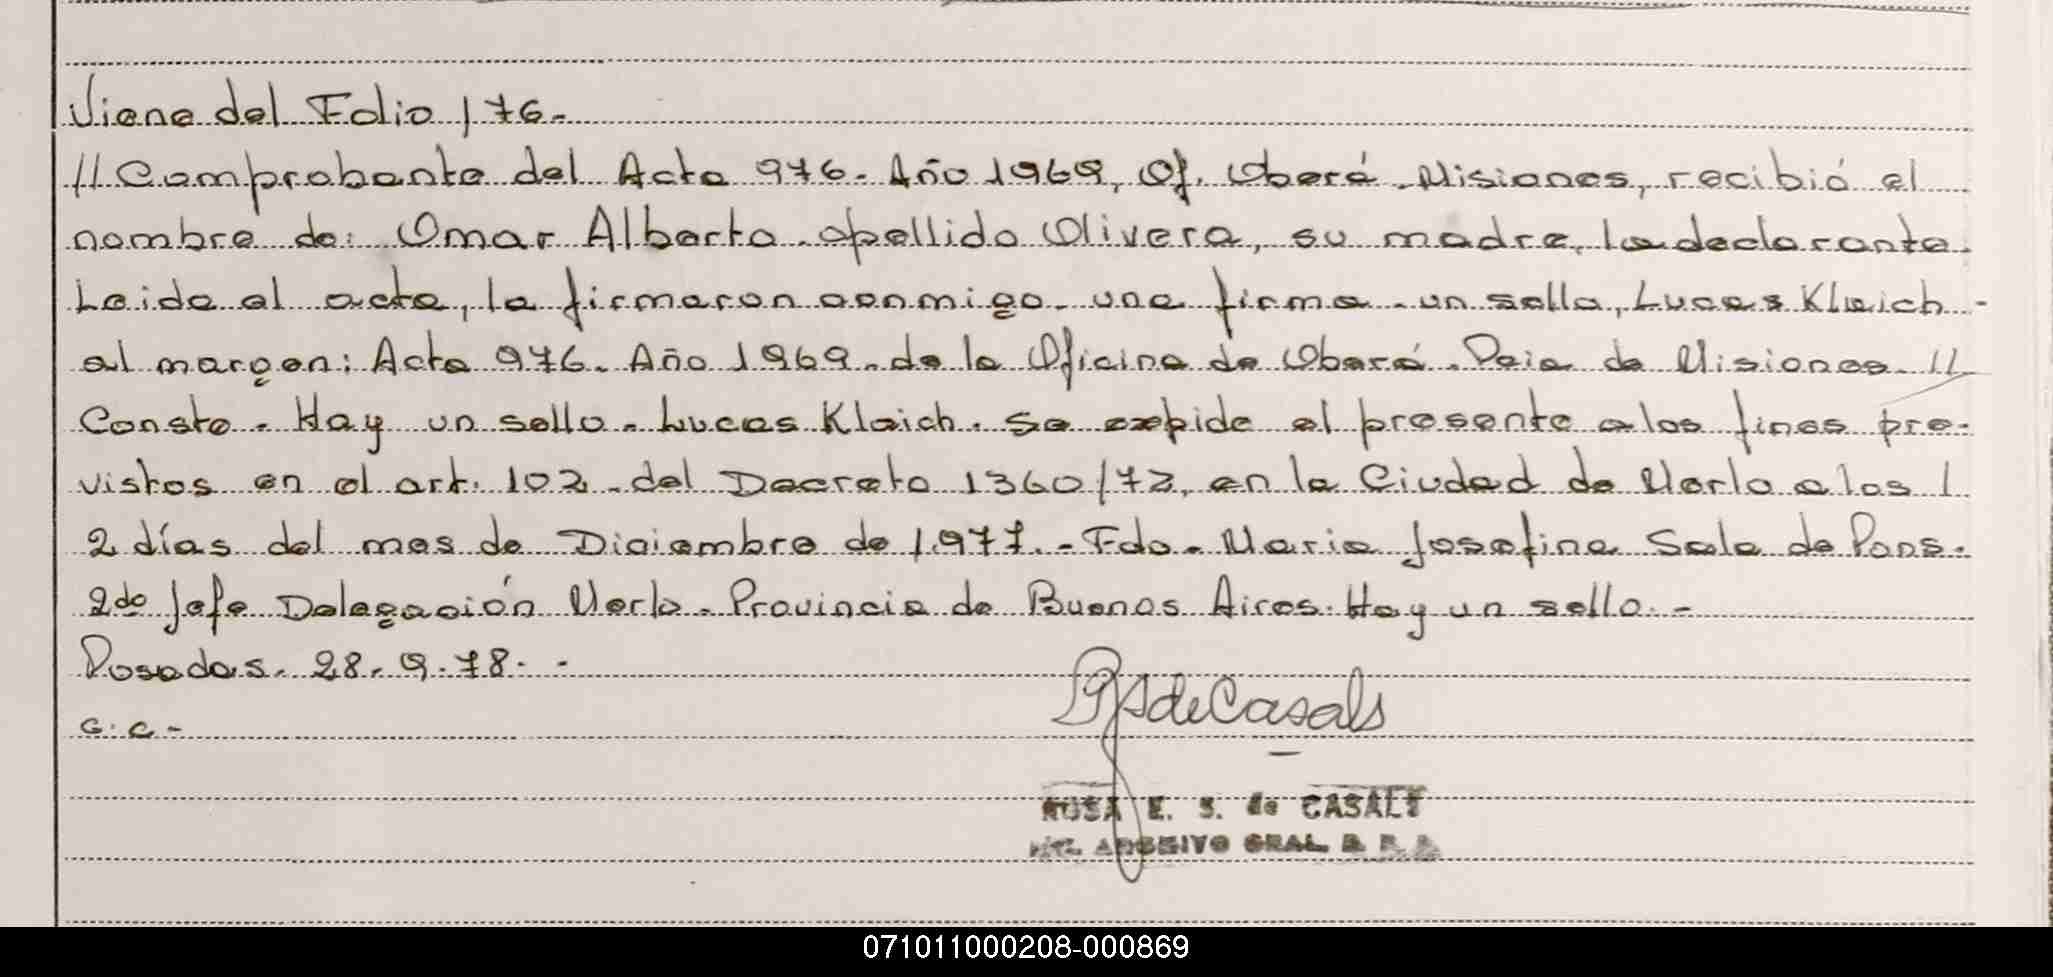 Viene del Folio 176.-
// Comprobante del Acta 976. Año 1969, Of. Oberá. Misiones, recibió el
nombre de: Omar Alberto. apellido Olivera, su madre, la declarante.
Leida el acta, la firmaron conmigo. una firma. un sello, Lucas Klaich -
al margen: Acta 976. Año 1969. de la Oficina de Oberá. Pcia de Misiones. //
Conste. Hay un sello. Lucas Klaich. Se expide el presente a los fines pre-
vistos en el art. 102. del Decreto 1360/72, en la Ciudad de Merlo a los 1
2 días del mes de Diciembre de 1977.- Fdo. Maria Josefina Sala de Pons.
2do Jefe Delegación Merlo. Provincia de Buenos Aires. Hay un sello. -
Posadas. 28. 9. 78. -
G. C. -
de Casals
ROSA E. S. de CASALS
ARCHIVO GRAL.
071011000208-000869